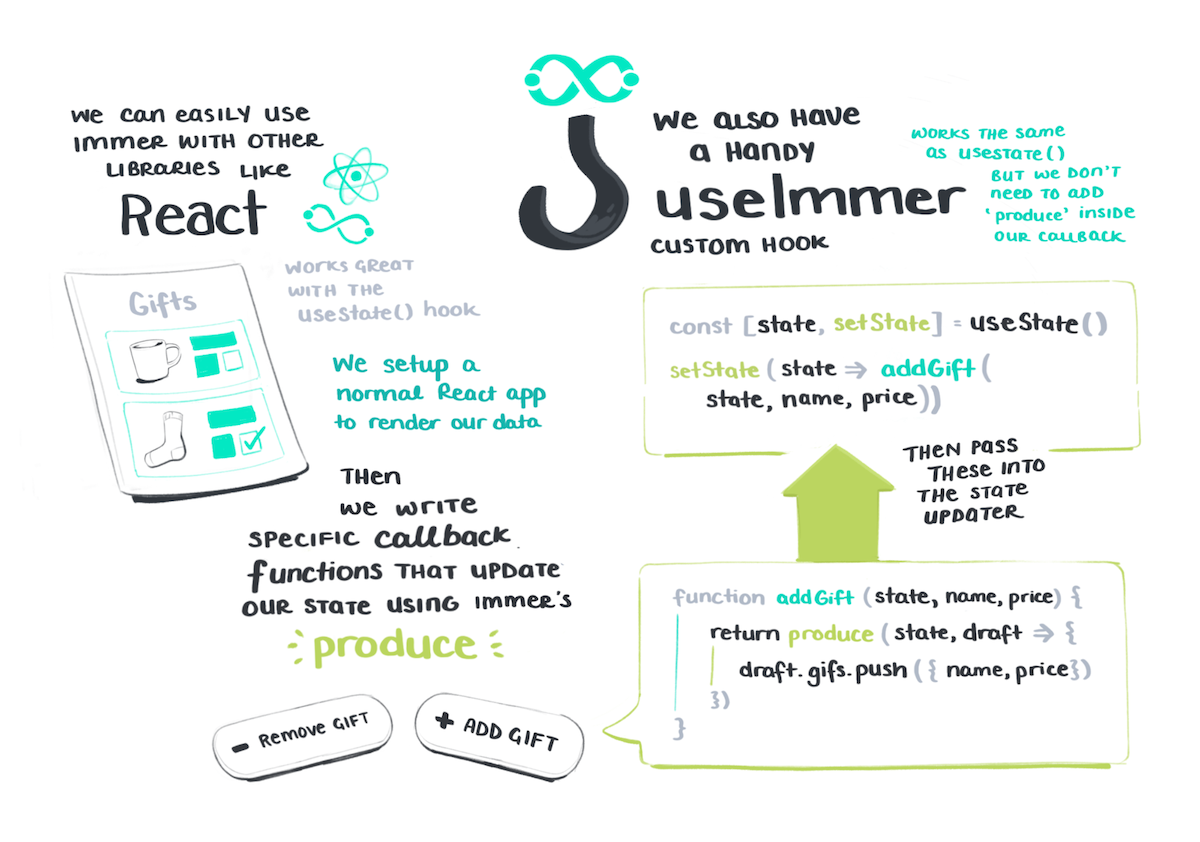 We can easily use
Immer with other
libraries like
React
works great
with the
useState() hook
Gifts
We setup a
normal React app
to render our data
Then
we write
specific callback
functions that update
our state using Immer's
produce
- Remove Gift
+ Add Gift
We also have
a handy
useImmer
custom hook
works the same
as useState()
but we don't
need to add
'produce' inside
our callback
const [state, setState] = useState()
setState (state => addGift(
state, name, price))
Then pass
these into
the state
updater
function addGift (state, name, price) {
return produce (state, draft => {
draft.gifs.push ({ name, price})
})
}